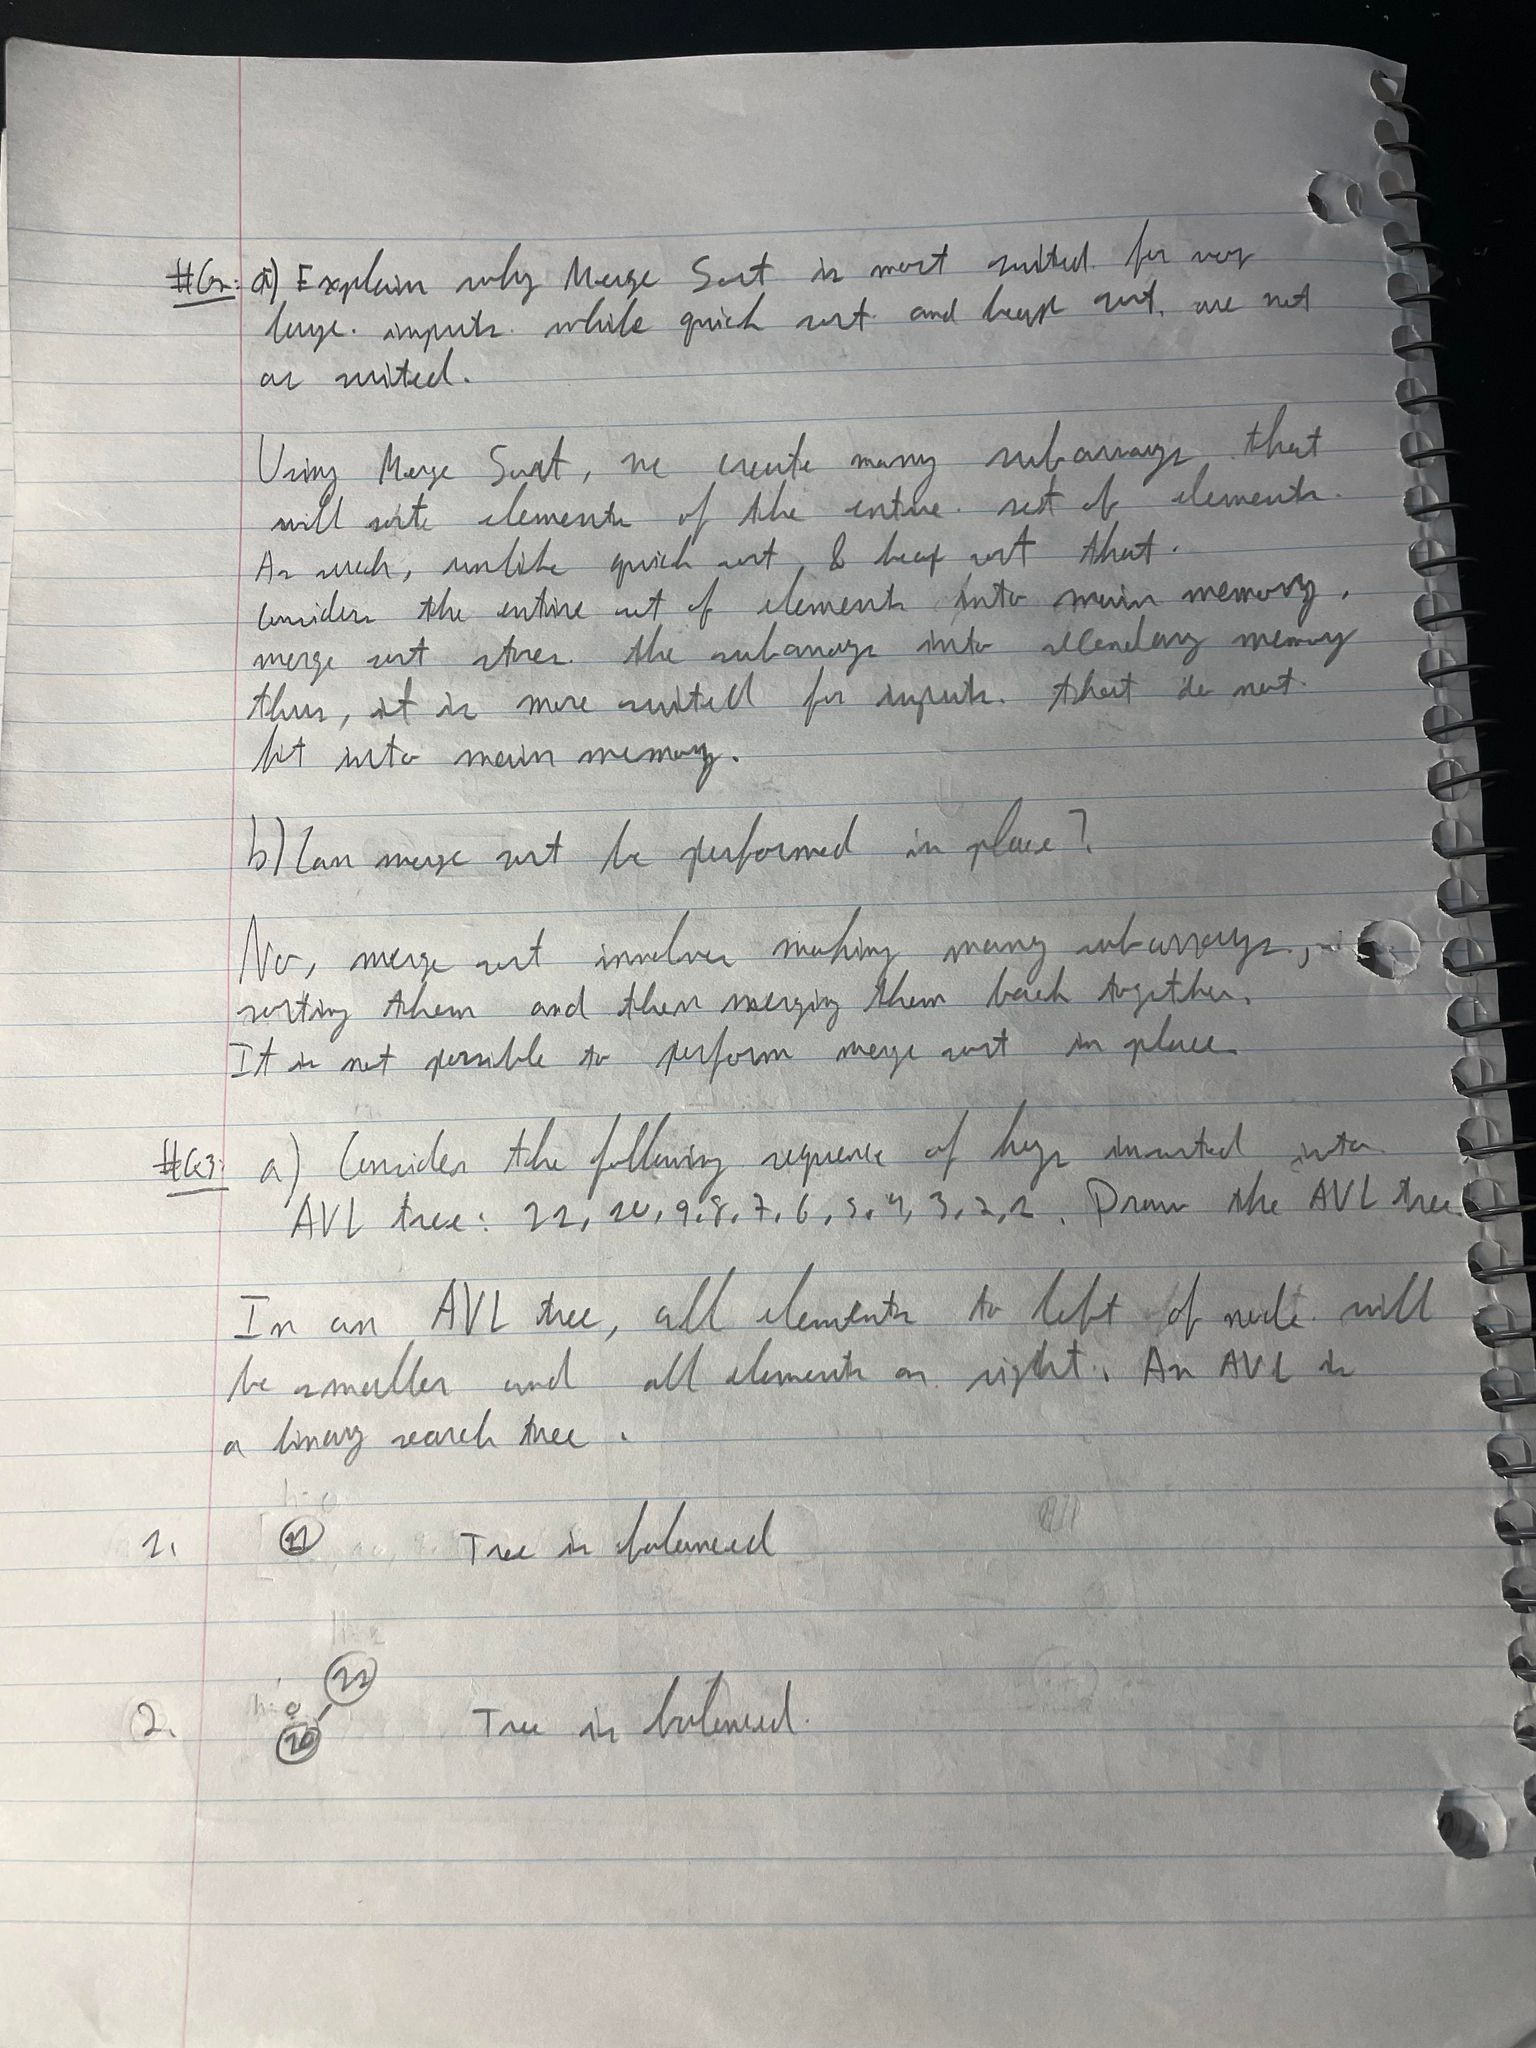 #G2: a) Explain why Merge Sort is most suited for very
large inputs while quick sort and heap sort are not
as suited.
Using Merge Sort, we create many subarrays that
will sort elements of the entire set of elements.
As such, unlike quick sort & heap sort that
considers the entire set of elements into main memory,
merge sort stores the subarrays into secondary memory
thus, it is more suited for inputs that do not
fit into main memory.
b) Can merge sort be performed in place?
No, merge sort involves making many subarrays,
sorting them and then merging them back together.
It is not possible to perform merge sort in place.
#G3: a) Consider the following sequence of keys inserted into
AVL tree: 11, 10, 9, 8, 7, 6, 5, 4, 3, 2, 1. Draw the AVL tree.
In an AVL tree, all elements to left of node will
be smaller and all elements on right. An AVL is
a binary search tree.
1. 11 Tree is balanced
11
h=0
2. 10 Tree is balanced.